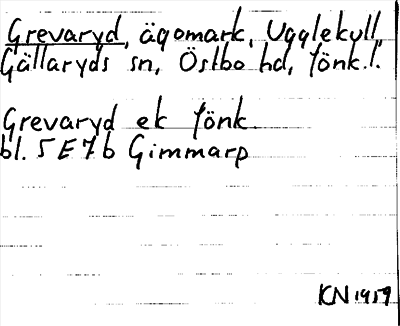 Grevaryd, ägomark, Ugglekull
Gällaryds sn, Östbo hd, Jönk.l.
Grevaryd ek Jönk
bl. 5E7b Gimmarp
KN 1959